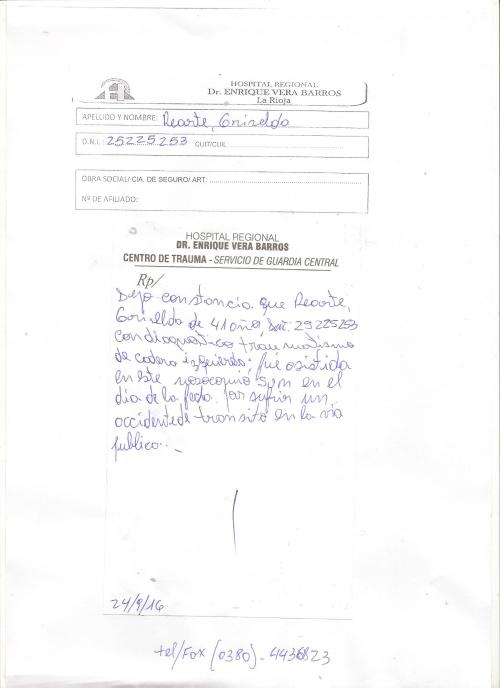 HOSPITAL REGIONAL
Dr. ENRIQUE VERA BARROS
La Rioja
APELLIDO Y NOMBRE: Rearte, Griselda
D.N.I.: 25225253 CUIT/CUIL
OBRA SOCIAL/ CIA. DE SEGURO/ ART:
Nº DE AFILIADO:
HOSPITAL REGIONAL
DR. ENRIQUE VERA BARROS
CENTRO DE TRAUMA - SERVICIO DE GUARDIA CENTRAL
Rp/
Dejo constancia que Rearte,
Griselda de 41 años, 25225253
con diagnostico traumatismo
de cadera izquierda; fué asistida
en este nosocomio en el
dia de la fecha por sufrir un
accidente de transito en la via
publico.
24/9/16
tel/Fax (0380) - 4436823